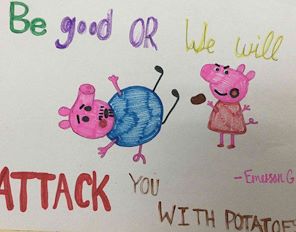 Be good OR We will
ATTACK YOU
- Emerson G
WITH POTATOES